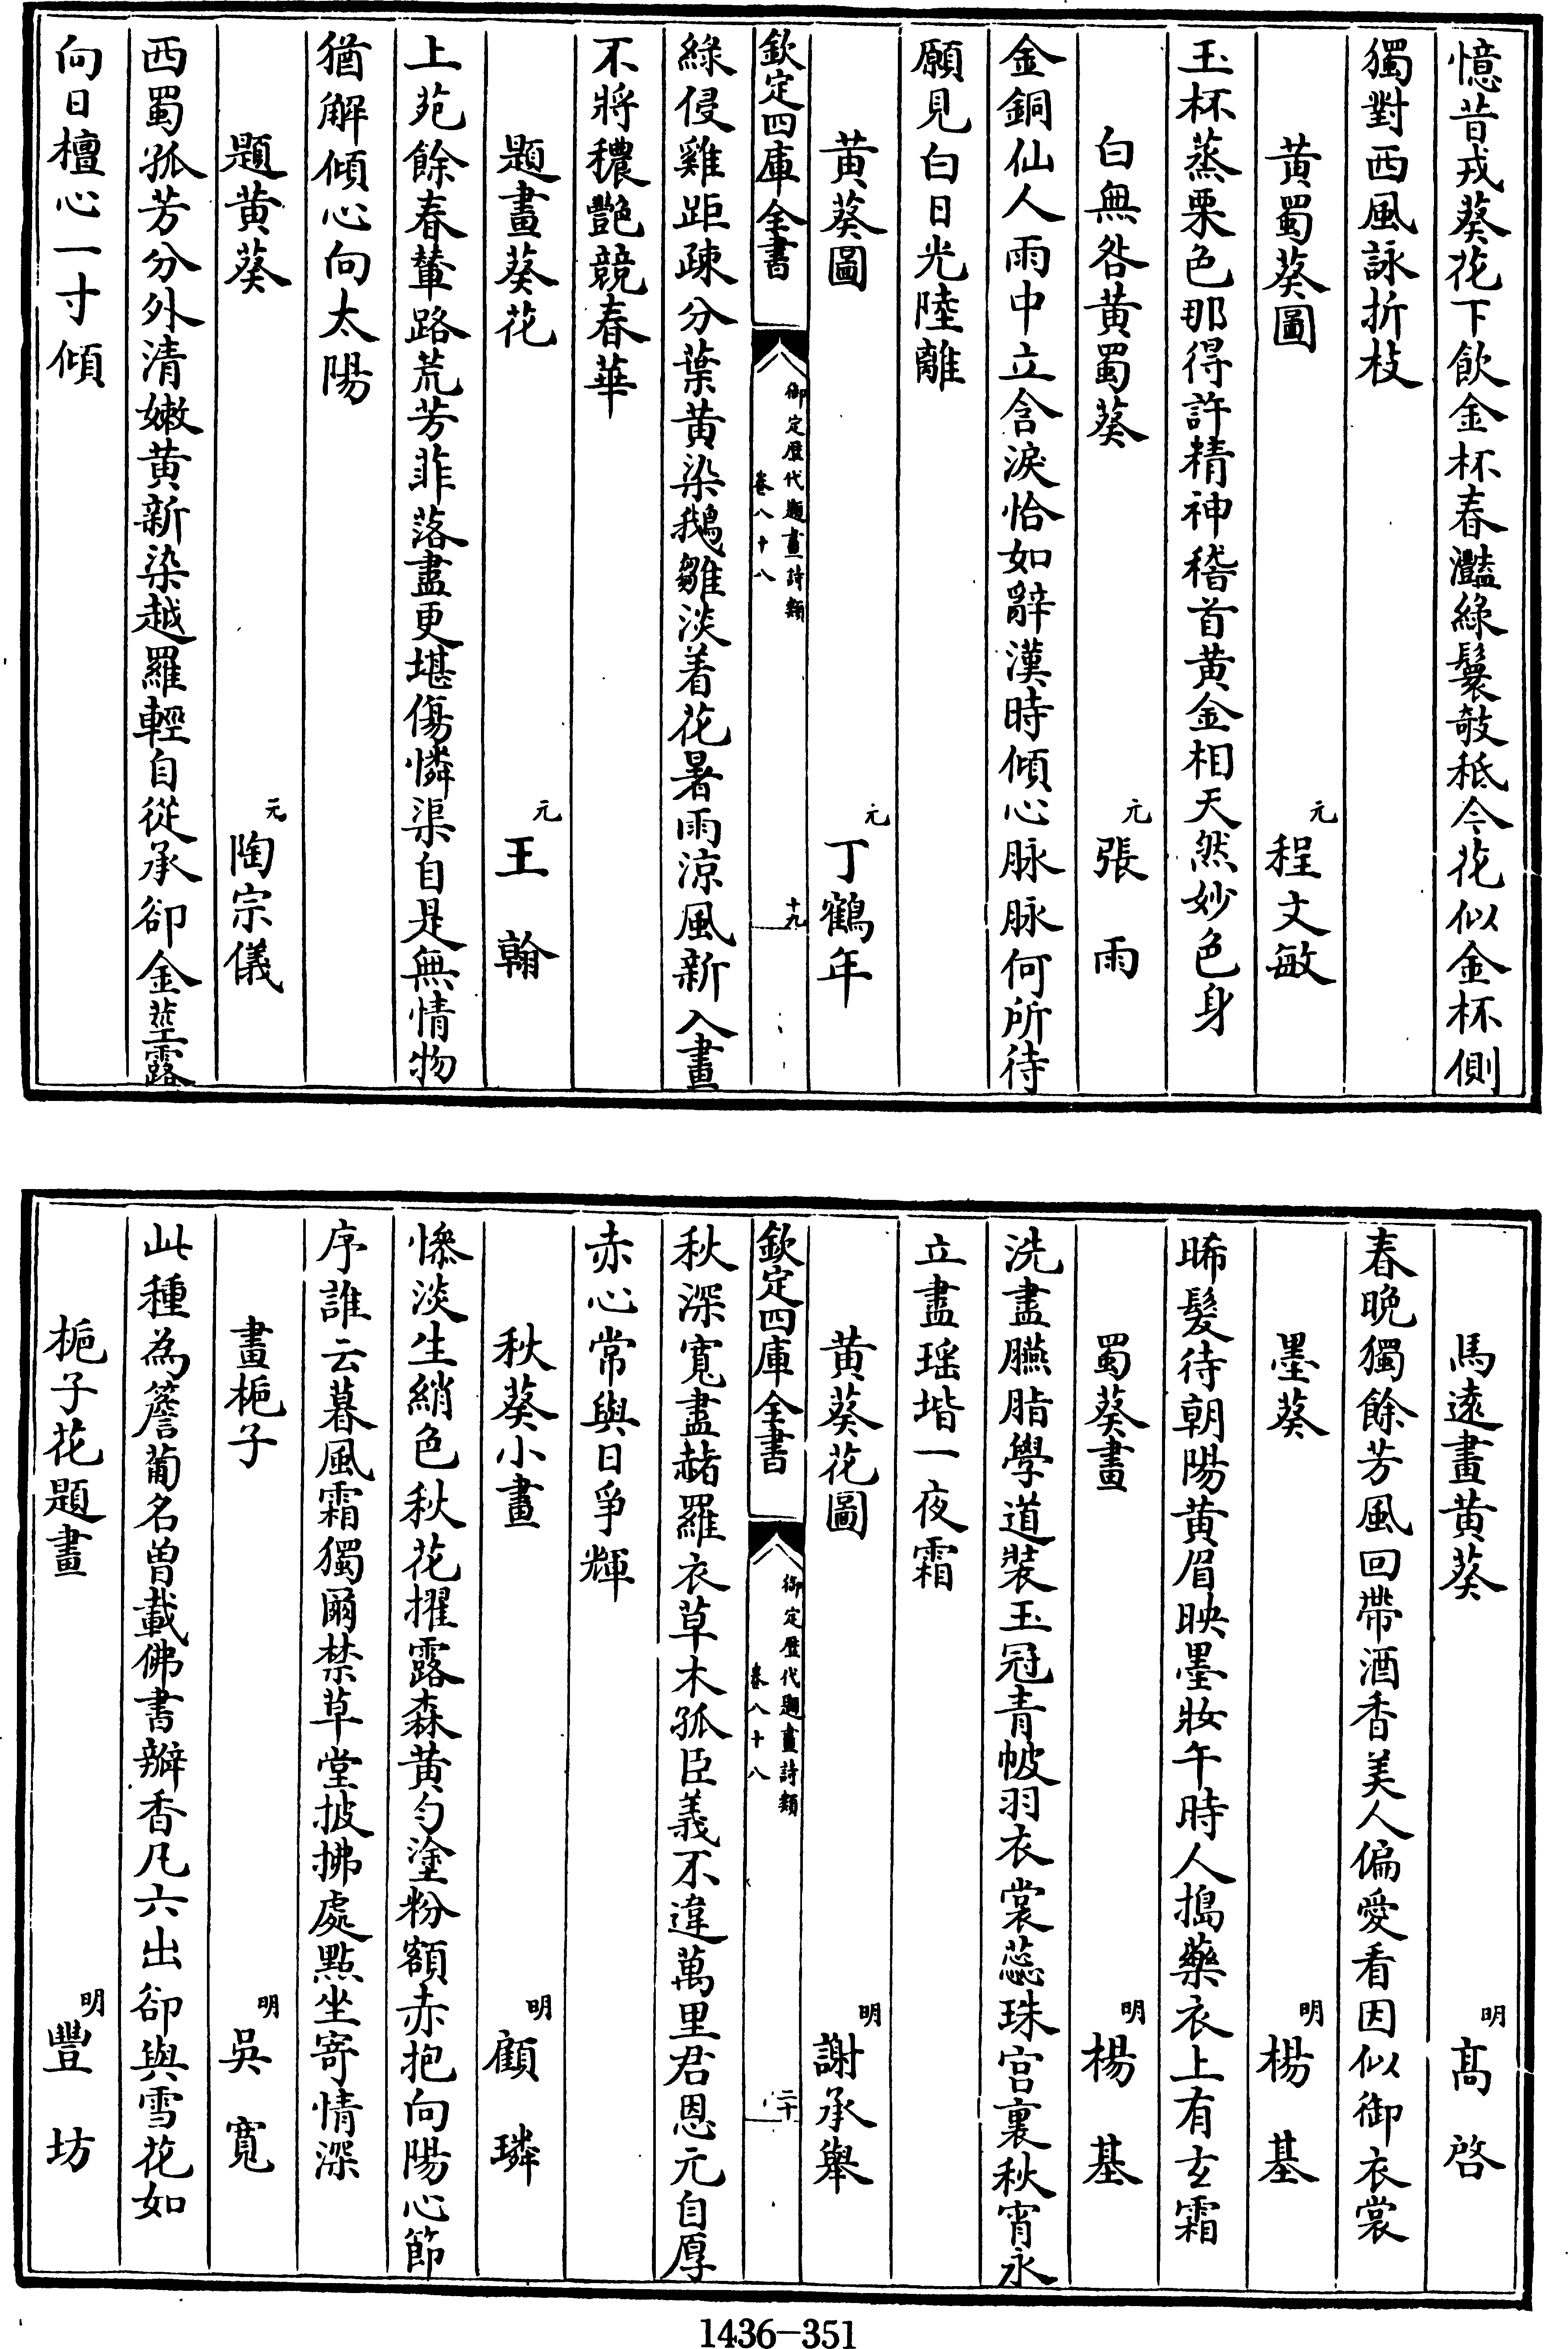 憶昔戎葵花下飲金杯春灩綠鬟敧秪今花似金杯側
獨對西風詠折枝
黃蜀葵圖 元 程文敏
玉杯蒸栗色那得許精神稽首黃金相天然妙色身
白無咎黃蜀葵 元 張雨
金銅仙人雨中立含淚恰如辭漢時傾心脉脉何所待
願見白日光陸離
黃葵圖 元 丁鶴年
欽定四庫全書 御定歷代題畫詩類 卷八十八 十九
綠侵雞距疎分葉黃染鵝雛淡着花暑雨涼風新入畫
不將穠艷競春華
題畫葵花 元 王翰
上苑餘春輦路荒芳菲落盡更堪傷憐渠自是無情物
猶解傾心向太陽
題黃葵 元 陶宗儀
西蜀孤芳分外清嫩黃新染越羅輕自從承卻金莖露
向日檀心一寸傾
馬遠畫黃葵 明 高啓
春晚獨餘芳風回帶酒香美人偏愛看因似御衣裳
墨葵 明 楊基
晞髮待朝陽黃眉映墨妝午時人搗藥衣上有玄霜
蜀葵畫 明 楊基
洗盡臙脂學道裝玉冠青帔羽衣裳蕊珠宮裏秋宵永
立盡瑤堦一夜霜
黃葵花圖 明 謝承舉
欽定四庫全書 御定歷代題畫詩類 卷八十八 二十
秋深寬盡赭羅衣草木孤臣義不違萬里君恩元自厚
赤心常與日爭輝
秋葵小畫 明 顧璘
慘淡生綃色秋花擢露森黃勻塗粉額赤抱向陽心節
序誰云暮風霜獨爾禁草堂披拂處點坐寄情深
畫梔子 明 吳寬
此種為簷蔔名曾載佛書瓣香凡六出卻與雪花如
梔子花題畫 明 豐坊
1436-351